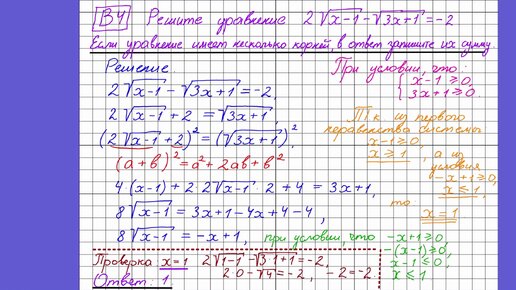 В4 Решите уравнение 2√(x-1) - √(3x+1) = -2
Если уравнение имеет несколько корней, в ответ запишите их сумму.
Решение.
2√(x-1) - √(3x+1) = -2,
2√(x-1) + 2 = √(3x+1),
(2√(x-1) + 2)² = (√(3x+1))²,
(a+b)² = a² + 2ab + b²
4(x-1) + 2·2√(x-1)·2 + 4 = 3x+1,
8√(x-1) = 3x+1-4x+4-4,
8√(x-1) = -x+1, при условии, что -x+1≥0,
-(x-1)≥0,
x-1≤0
x≤1
При условии, что:
{ x-1≥0,
3x+1≥0.
Т.к из первого
неравенства системы
x-1≥0,
x≥1, а из
условия
-x+1≥0,
x≤1,
то
x=1
Проверка: x=1 2√(1-1) - √(3·1+1) = -2,
2·0 - √4 = -2, -2 = -2.
Ответ: 1